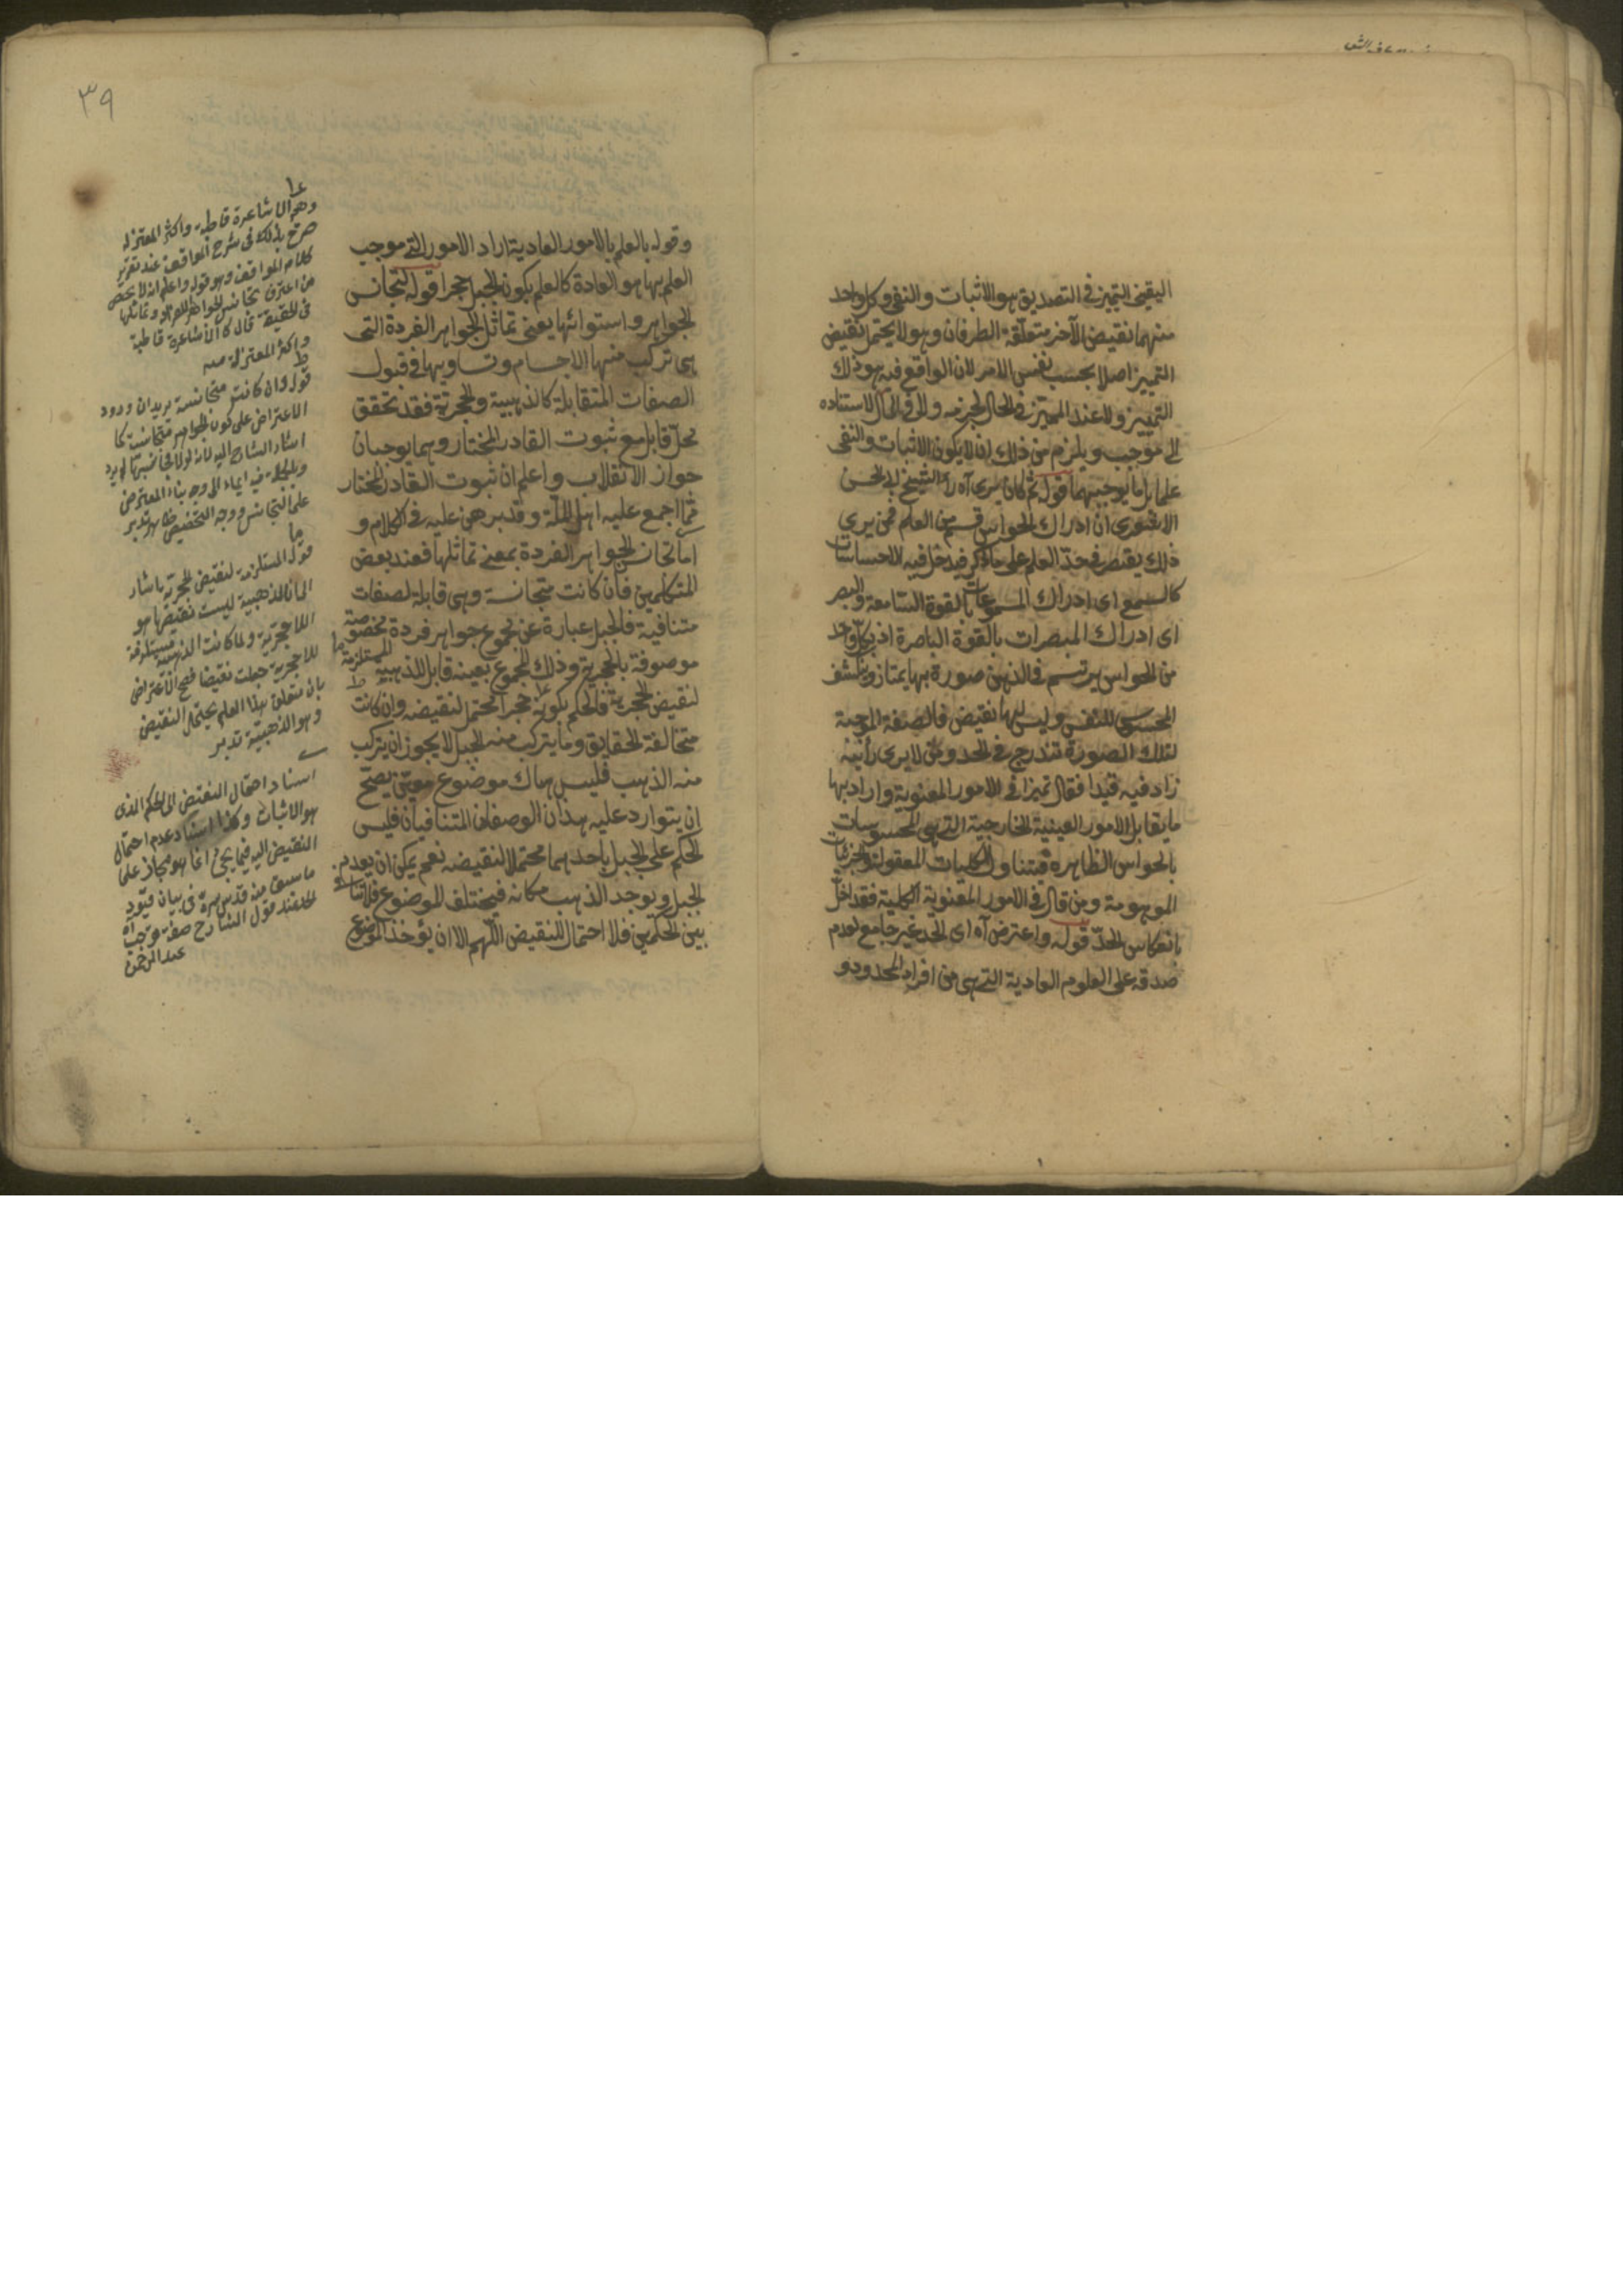 اليقيني التميز في التصديق هو الاثبات والنفي وكل واحد
منهما نقيض الآخر متعلقه الطرفان وهو لا يحتمل نقيض
التمييز اصلا بحسب نفس الامر لان الواقع فيه هو ذلك
التمييز ولا عند المميز في الحال لجزمه ولا في المآل لاستناده
الى موجب ويلزم من ذلك ان لا يكون الاثبات والنفي
علما بل ما يوجبهما قوله ثم كان يرى آه رأى الشيخ ابي الحسن
الاشعري ان ادراك الحواس قسم من العلم فمن يرى
ذلك يقتصر في حد العلم على ما ذكر فيدخل فيه الاحساسات
كالسمع اى ادراك المسموعات بالقوة السامعة والبصر
اى ادراك المبصرات بالقوة الباصرة اذ بكل واحد
من الحواس يرتسم في الذهن صورة بها يمتاز وينكشف
المحسوس للنفس وليس لها نقيض فالصفة الموجبة
لتلك الصورة تندرج في الحد ومن لا يرى رأيه
زاد فيه قيدا فقال تميزا في الامور المعنوية واراد بها
ما يقابل الامور العينية الخارجية التي هي المحسوسات
بالحواس الظاهرة فيتناول الكليات المعقولة والجزئيات
الموهومة ومن قال في الامور المعنوية الكلية فقد اخل
بانعكاس الحد قوله واعترض آه اى الحد غير جامع لعدم
صدقه على العلوم العادية التي هي من افراد المحدود و
٣٩
وقوله بالعلم بالامور العادية اراد الامور التي موجب
العلم بها هو العادة كالعلم بكون الجبل حجرا قوله لتجانس
الجواهر واستوائها يعني تماثل الجواهر الفردة التي
هي تركب منها الاجسام وتساويها في قبول
الصفات المتقابلة كالذهبية والحجرية فقد تحقق
محل قابل مع ثبوت القادر المختار وهما يوجبان
جواز الانقلاب واعلم ان ثبوت القادر المختار
مما اجمع عليه اهل الملة وقد برهن عليه في الكلام و
اما تجانس الجواهر الفردة بمعنى تماثلها فعند بعض
المتكلمين فان كانت متجانسة وهي قابلة لصفات
متنافية فالجبل عبارة عن مجموع جواهر فردة مخصوصة
موصوفة بالحجرية وذلك المجموع بعينه قابل للذهبية المستلزمة
لنقيض الحجرية فالحكم بكونه حجرا محتمل لنقيضه وان كانت
متخالفة الحقايق وما يتركب منه الجبل لا يجوز ان يتركب
منه الذهب فليس هناك موضوع معين يصح
ان يتوارد عليه هذان الوصفان المتنافيان فليس
الحكم على الجبل باحدهما محتملا لنقيضه نعم يمكن ان يعدم
الجبل ويوجد الذهب مكانه فيختلف الموضوع فلا تنافي
بين الحكمين فلا احتمال للنقيض اللهم الا ان يؤخذ الموضوع
وهم الاشاعرة قاطبة واكثر المعتزلة
صرح بذلك في شرح المواقف عند تقرير
كلام المواقف وهو قوله واعلم انه لا محيص
من اعترف بتجانس الجواهر الافراد وتماثلها
في الحقيقة قال كالاشاعرة قاطبة
واكثر المعتزلة منه
قوله وان كانت متجانسة يريد ان ورود
الاعتراض على كون الجواهر متجانسة كما
اشار الشارح اليه لانه لولا تجانسها لم يرد
وبالجملة فيه ايماء الى وجه بناء المعترض
على التجانس ووجه التخصيص ظاهر تدبر
قوله المستلزمة لنقيض الحجرية اشار
الى ان الذهبية ليست نقيضها هو
اللاحجرية ولما كانت الذهبية مستلزمة
للاحجرية جعلت نقيضا فصح الاعتراض
بان متعلق هذا العلم يحتمل النقيض
وهو الذهبية تدبر
اسناد احتمال النقيض الى الحكم الذي
هو الاثبات وكذا اسناد عدم احتمال
النقيض اليه فيما يجئ انما هو مجاز على
ما سبق منه قدس سره في بيان قيود
الحد عند قول الشارح صفة توجب آه
عبد الرحمن